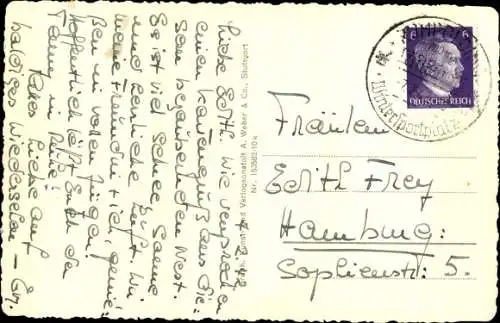 Liebe Edith. Wie versprochen
einen Kartengruß aus die-
sem bezaubernden Nest.
Es ist viel Schnee, Sonne
und herrliche Luft. Wir
meine Freundin + ich, genie-
ßen in vollen Zügen.
Hoffentlich läßt Euch der
Tommy in Ruhe!
Alles Liebe auf
baldiges Wiedersehen –
Kunst- und Verlagsanstalt A. Weber & Co., Stuttgart
Nr. 153562-10 k
6 6
DEUTSCHES REICH
Wintersportplatz
Fräulein
Edith Frey
Hamburg:
Sophienstr: 5.